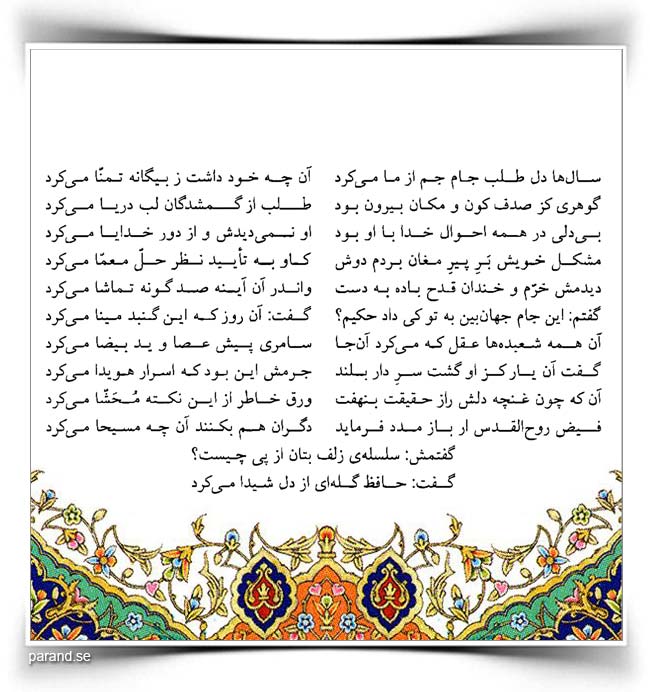 سال‌ها دل طلب جام جم از ما می‌کرد آن چه خود داشت ز بیگانه تمنّا می‌کرد
گوهری کز صدف کون و مکان بیرون بود طلب از گمشدگان لب دریا می‌کرد
بی‌دلی در همه احوال خدا با او بود او نمی‌دیدش و از دور خدایا می‌کرد
مشکل خویش بَرِ پیرِ مغان بردم دوش کاو به تأیید نظر حلّ معمّا می‌کرد
دیدمش خرّم و خندان قدح باده به دست واندر آن آینه صد گونه تماشا می‌کرد
گفتم: این جام جهان‌بین به تو کی داد حکیم؟ گفت: آن روز که این گنبد مینا می‌کرد
آن همه شعبده‌ها عقل که می‌کرد آن‌جا سامری پیش عصا و ید بیضا می‌کرد
گفت آن یار کز او گشت سرِ دار بلند جرمش این بود که اسرار هویدا می‌کرد
آن که چون غنچه دلش راز حقیقت بنهفت ورق خاطر از این نکته مُحَشّا می‌کرد
فیض روح‌القدس ار باز مدد فرماید دگران هم بکنند آن چه مسیحا می‌کرد
گفتمش: سلسله‌ی زلف بتان از پی چیست؟
گفت: حافظ گله‌ای از دل شیدا می‌کرد
parand.se